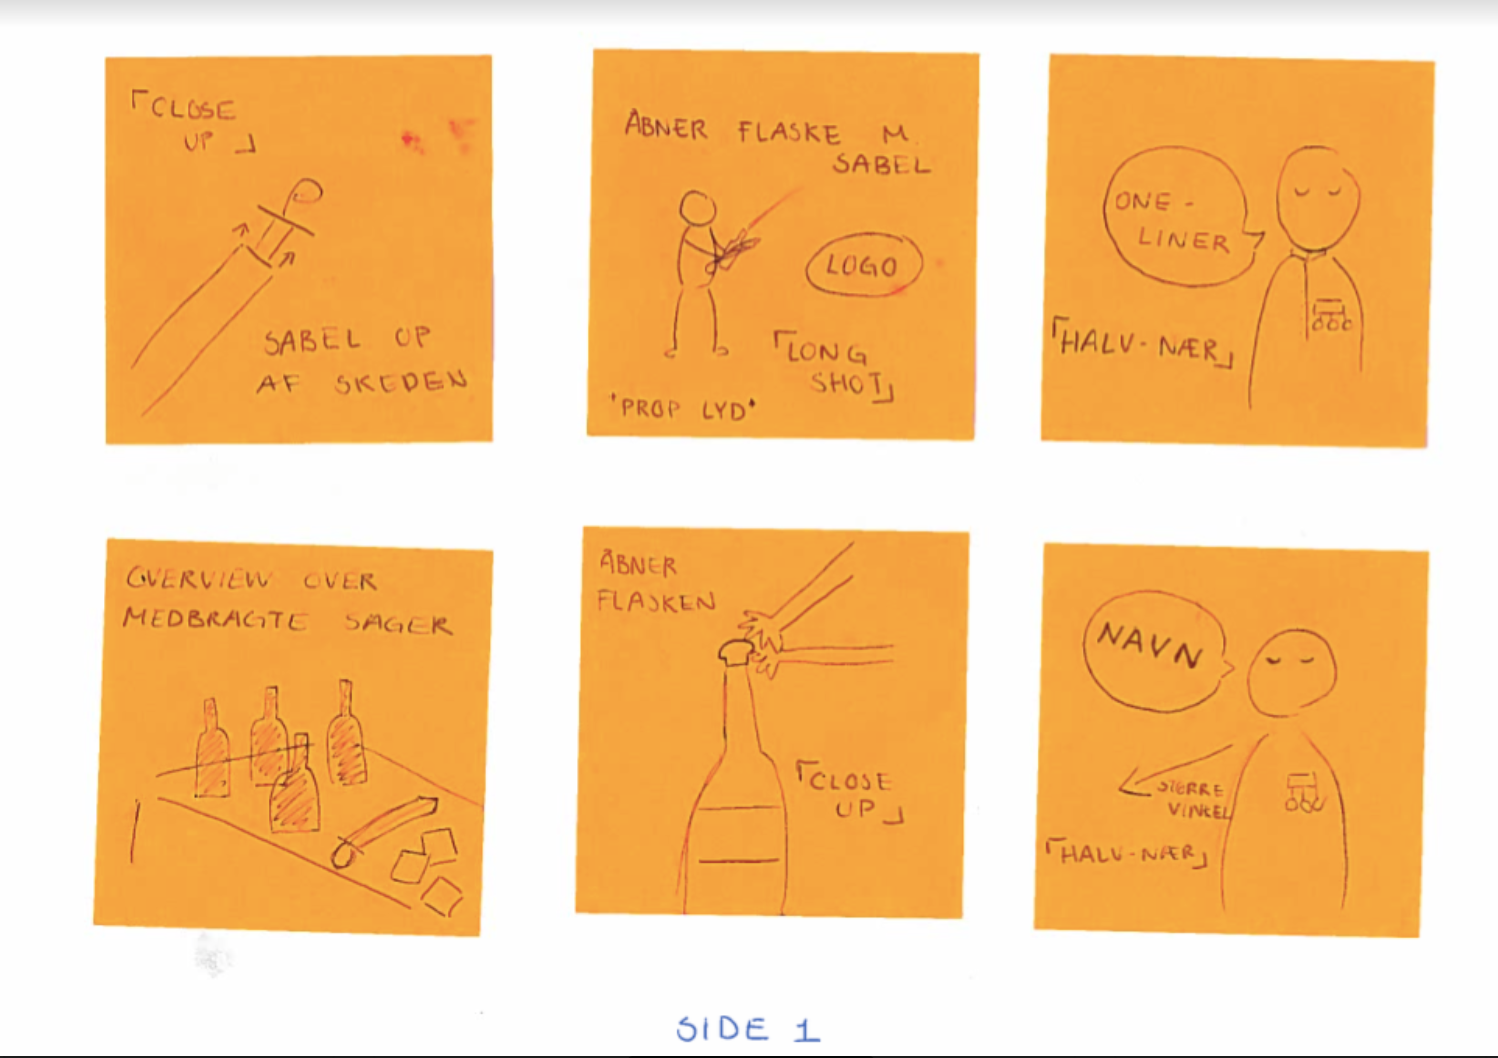 「CLOSE
UP」
SABEL OP
AF SKEDEN
ÅBNER FLASKE M.
SABEL
LOGO
「LONG
SHOT」
*PROP LYD*
ONE-
LINER
「HALV-NÆR」
OVERVIEW OVER
MEDBRAGTE SAGER
ÅBNER
FLASKEN
「CLOSE
UP」
NAVN
STØRRE
VINKEL
「HALV-NÆR」
SIDE 1